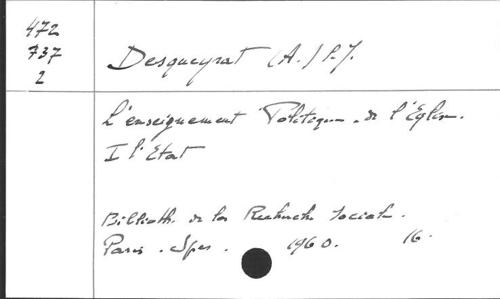 472
737
2
Desqueyrat (A.) S.J.
L'enseignement Politique de l'Eglise.
I l'Etat
Biblioth. de la Recherche Sociale.
Paris. Spes. 1960. 16.